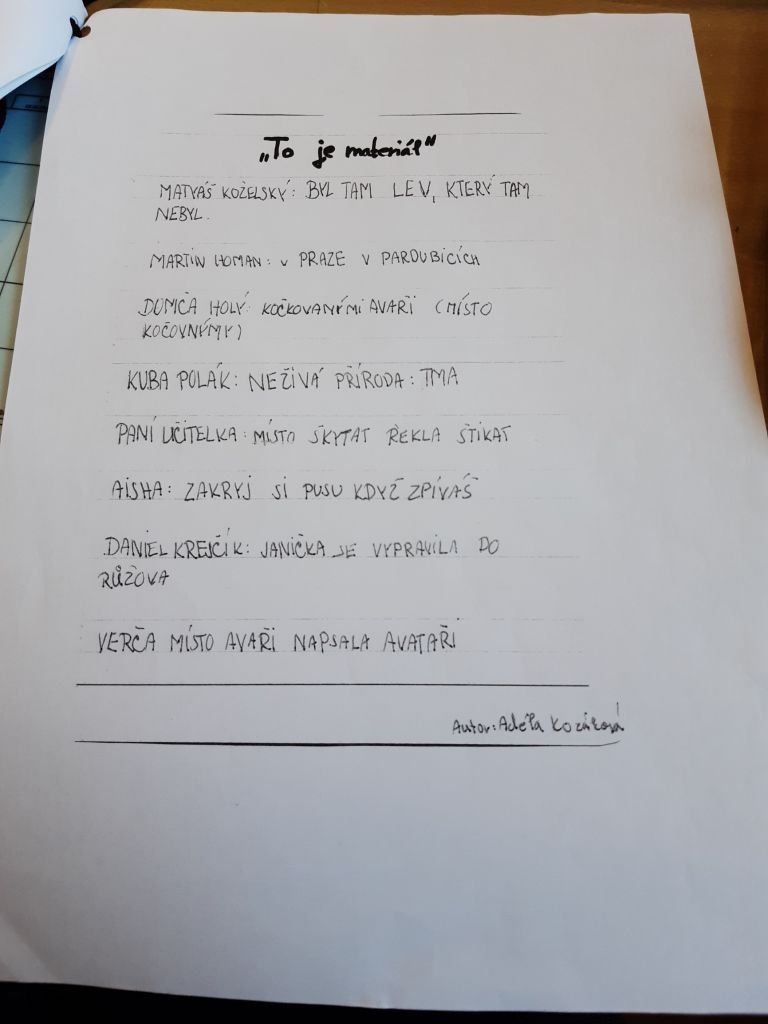 „To je materiál"
MATYÁŠ KOŽELSKÝ: BYL TAM LEV, KTERÝ TAM
NEBYL.
MARTIN HOMAN: V PRAZE V PARDUBICÍCH
DOMČA HOLÝ: KOČKOVANÝMI AVAŘI (MÍSTO
KOČOVNÝMY)
KUBA POLÁK: NEŽIVÁ PŘÍRODA: TMA
PANÍ UČITELKA: MÍSTO ŠKYTAT ŘEKLA ŠTIKAT
AISHA: ZAKRYJ SI PUSU KDYŽ ZPÍVÁŠ
DANIEL KREJČÍK: JANIČKA SE VYPRAVILA DO
RŮŽOVA
VERČA MÍSTO AVAŘI NAPSALA AVATAŘI
Autor: Adéla Kozáková